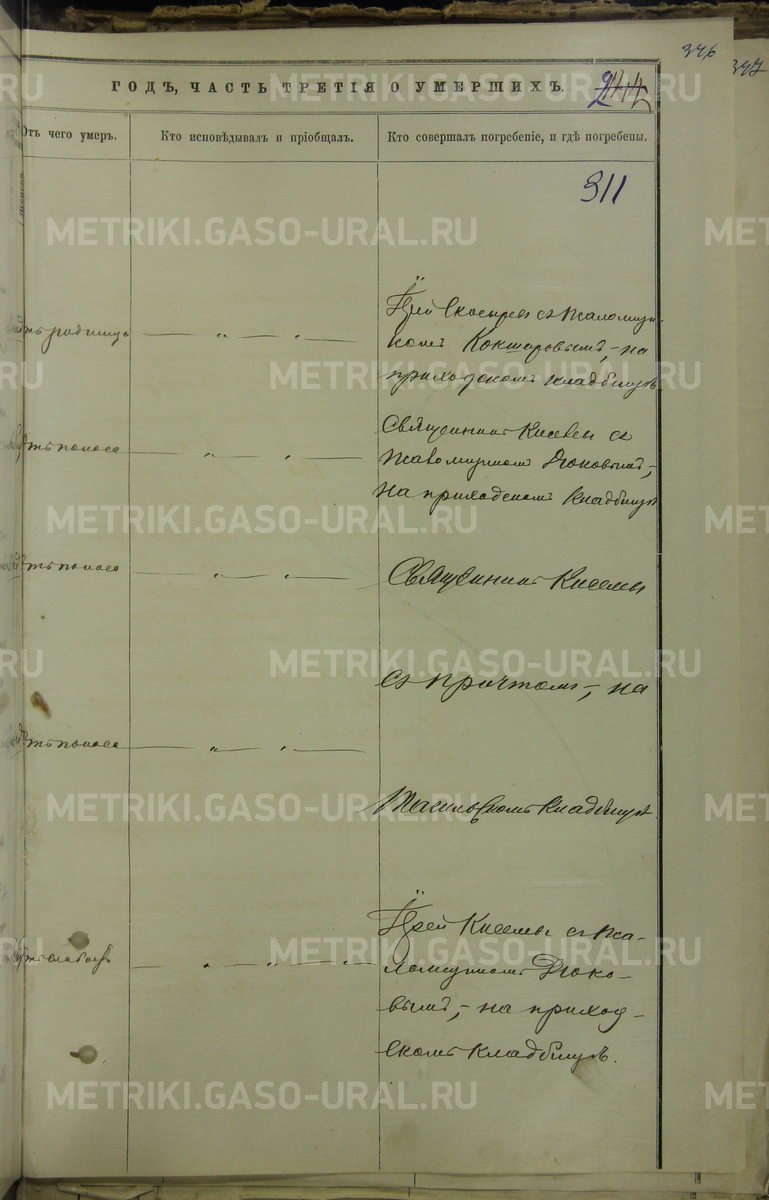 346
347
ГОДЪ, ЧАСТЬ ТРЕТІЯ О УМЕРШИХЪ.
244
Отъ чего умеръ.
Кто исповѣдывалъ и пріобщалъ.
Кто совершалъ погребеніе, и гдѣ погребены.
311
Отъ родимца
Іерей
съ псаломщи-
комъ Кокшаровымъ, на
приходскомъ кладбищѣ
Отъ поноса
Священникъ Киселевъ съ
псаломщикомъ Дюковымъ,
на приходскомъ кладбищѣ
Отъ поноса
Священникъ Киселевъ
съ причтомъ, на
Отъ поноса
кладбищѣ
Отъ слабости
Іерей Киселевъ съ пса-
ломщикомъ Дюко-
вымъ, на приход-
скомъ кладбищѣ.
METRIKI.GASO-URAL.RU